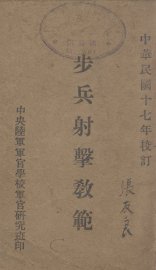 中華民國十七年校訂
步兵射擊教範
中央陸軍軍官學校軍官研究班印